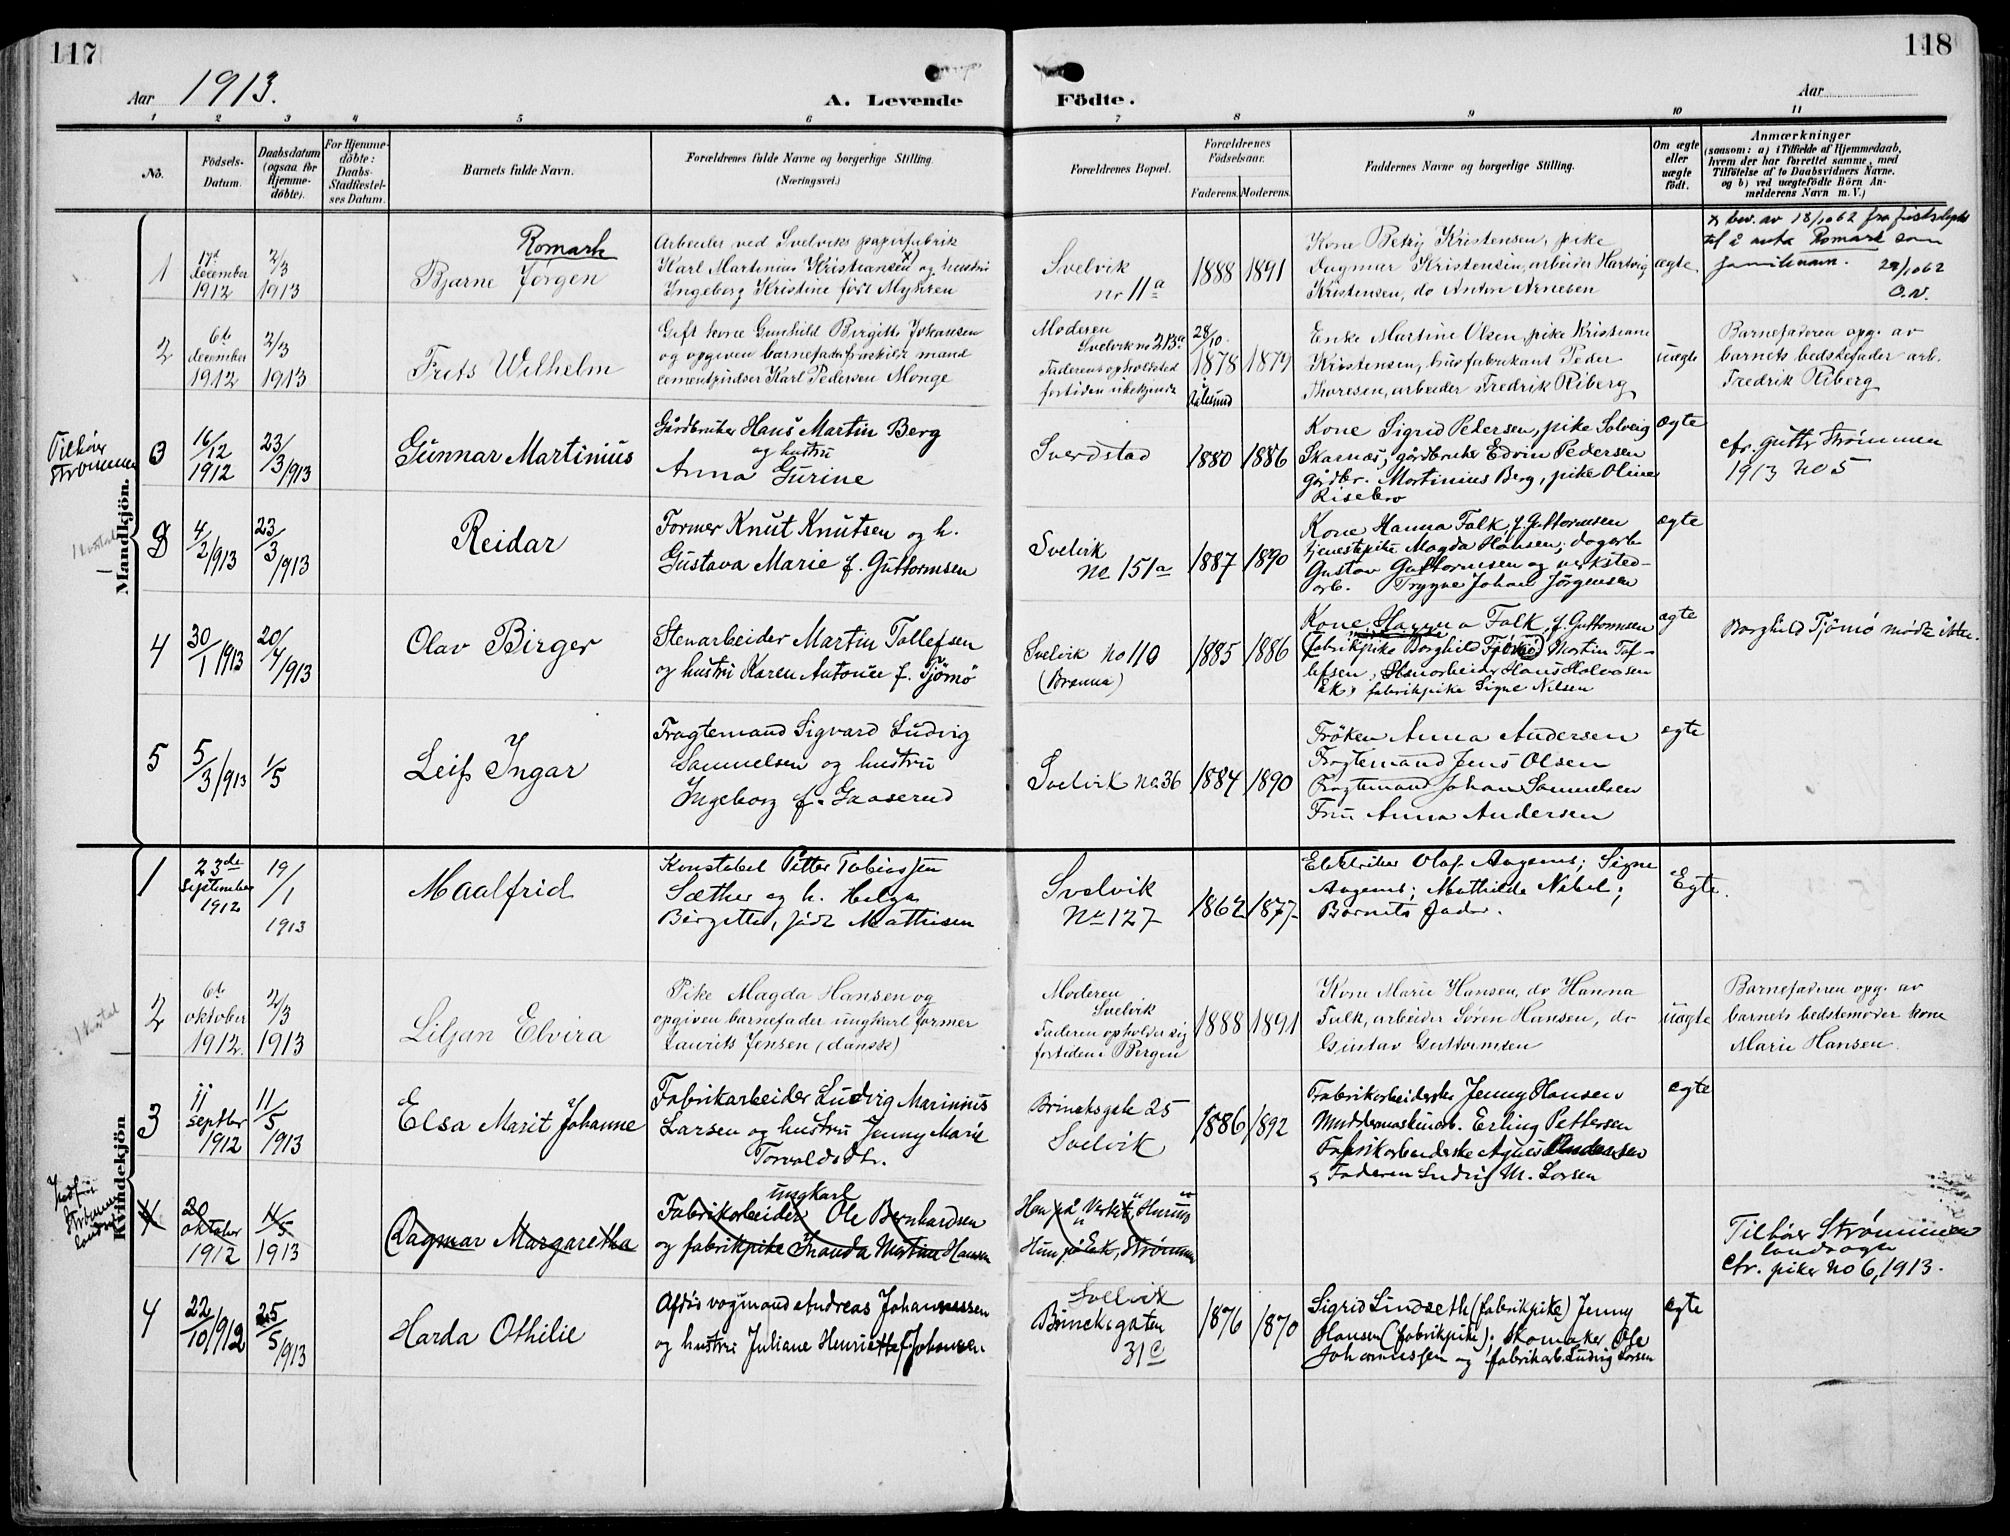 117
118
Aar 1913.
A. Levende
Födte.
Aar
1 2 3 4 5 6 7 8 9 10 11
No.
Födsels-
Datum.
Daabsdatum
(ogsaa for
Hjemme-
döbte).
For Hjemme-
döbte:
Daabs-
Stadfæstel-
ses Datum.
Barnets fulde Navn.
Forældrenes fulde Navne og borgerlige Stilling.
(Næringsvei.)
Forældrenes Bopæl.
Forældrenes
Födselsaar.
Faderens. Moderens.
Faddernes Navne og borgerlige Stilling.
Om ægte
eller
uægte
födt.
Anmærkninger
(saasom: a) i Tilfælde af Hjemmedaab,
hvem der har forrettet samme, med
Tilföielse af to Daabsvidners Navne,
og b) ved uægtefödte Börn An-
melderens Navn m. V.)
Mandkjön.
1
17de
december
1912
2/3
1913
Romark
Bjarne Jørgen
Arbeider ved Svelviks papirfabrik
Karl Martinius Kristiansen x) og hustru
Ingeborg Kristine født Myhren
Svelvik
nr 11a
1888
1891
Kone Betzy Kristensen, pike
Dagmar Kristensen, arbeider Hartvig
Kristensen, do Anton Arnesen
ægte
x bev. av 18/10 62 fra
til å anta Romark som
familienavn. 29/10 62
O.N.
2
6te
december
1912
2/3
1913
Frits Wilhelm
Gift kone Gunhild Birgitte Johansen
og opgiven barnefader fraskilt mand
Karl Pedersen Monge
Moderen
Svelvik no 213a
Faderens opholdssted
fortiden ubekjendt
28/10
1878
i
Aalesund
1879
Enke Martine Olsen, pike Kristiane
Kristensen, Peder
Thoresen, arbeider Fredrik Riberg
uægte
Barnefaderen opg. av
barnets bedstefader arb.
Fredrik Riberg
Tilhør
Strømmen
3
16/12
1912
23/3/913
Gunnar Martinius
Gårdbruker Hans Martin Berg
og hustru
Anna Gurine
Sverdstad
1880
1886
Kone Sigrid Pedersen, pike Solveig
Skarnæs; gårdbruker Edvin Pedersen
gårdbr. Martinius Berg, pike Oline
Risebro
ægte
cfr. gutter Strømmen
1913 no 5
3
4/2/913
23/3/913
Reidar
Former Knut Knutsen og h.
Gustava Marie f. Guttormsen
Svelvik
No 151a
1887
1890
Kone Hanna Falk, f. Guttormsen
tjenestepike Magda Hansen; dagarb.
Gustav Guttormsen og verksted-
arb. Trygve Johan Jørgensen
ægte
4
30/1/913
20/4/913
Olav Birger
Stenarbeider Martin Tollefsen
og hustru Karen Antonie f. Tjømø
Svelvik No 110
(Brenna)
1885
1886
Kone Hanna Falk, f. Guttormsen
fabrikpike Borghild Tjømø, Martin Tol-
lefsen, Stenarbeider Hans Halvorsen
Ek, fabrikpike Signe Nilsen
ægte
Borghild Tjömö mødte ikke.
5
5/3/913
1/5
Leif Ingar
Fragtemand Sigvard Ludvig
Samuelsen og hustru
Ingeborg f. Gaaserud
Svelvik no 36
1884
1890
Fröken Anna Andersen
Fragtemand Jens Olsen
Fragtemand Johan Samuelsen
Fru Anna Andersen
ægte
Kvindekjön
1
23de
September
1912
19/1
1913
Maalfrid
Konstabel Petter Tobiassen
Sæther og h. Helga
Birgitte, født Mathisen
Svelvik
No 127
1862
1877
Elektriker Olaf Aagenes; Signe
Aagenes; Mathilde Nebel;
Barnets fader.
Egte.
2
6te
oktober
1912.
2/3
1913
Liljan Elvira
Pike Magda Hansen og
opgiven barnefader ungkarl former
Laurits Jensen (dansk)
Moderen
Svelvik
Faderen opholder sig
fortiden i Bergen
1888
1891
Kone Marie Hansen, do Hanna
Falk, arbeider Søren Hansen, do
Gustav Guttormsen
uægte
Barnefaderen opg. av
barnets bedstemoder kone
Marie Hansen.
3
11
septbr
1912
11/5
1913
Elsa Marit Johanne
Fabrikarbeider Ludvig Marinius
Larsen og hustru Jenny Marie
Torvaldsdtr.
Brinchsgate 25
Svelvik
1886
1892
Fabrikarbeiderske Jenny Hansen
Muddermaskinarb. Erling Pettersen
Fabrikarbeiderske Agnes Andersen
& Faderen Ludvig M. Larsen
ægte
4
20
oktober
1912
11/5
1913
Dagmar Margaretha
ungkarl
Fabrikarbeider Ole Bernhardsen
og fabrikpike Martine Hansen
Han på Verket, Hurum
Hun på Ek, Strømmen
Tilhører Strømmen
landsogn
cfr. piker no 6, 1913.
4
22/10/912
25/5/913
Harda Othilie
Afdøs vognmand Andreas Johannessen
og hustru Juliane Henriette f. Johansen
Svelvik
Brinchsgaten
31c
1876
1870
Sigrid Lindseth (fabrikpike) Jenny
Hansen (fabrikpike); Skomaker Ole
Johannessen og fabrikarb. Ludvig Larsen
ægte